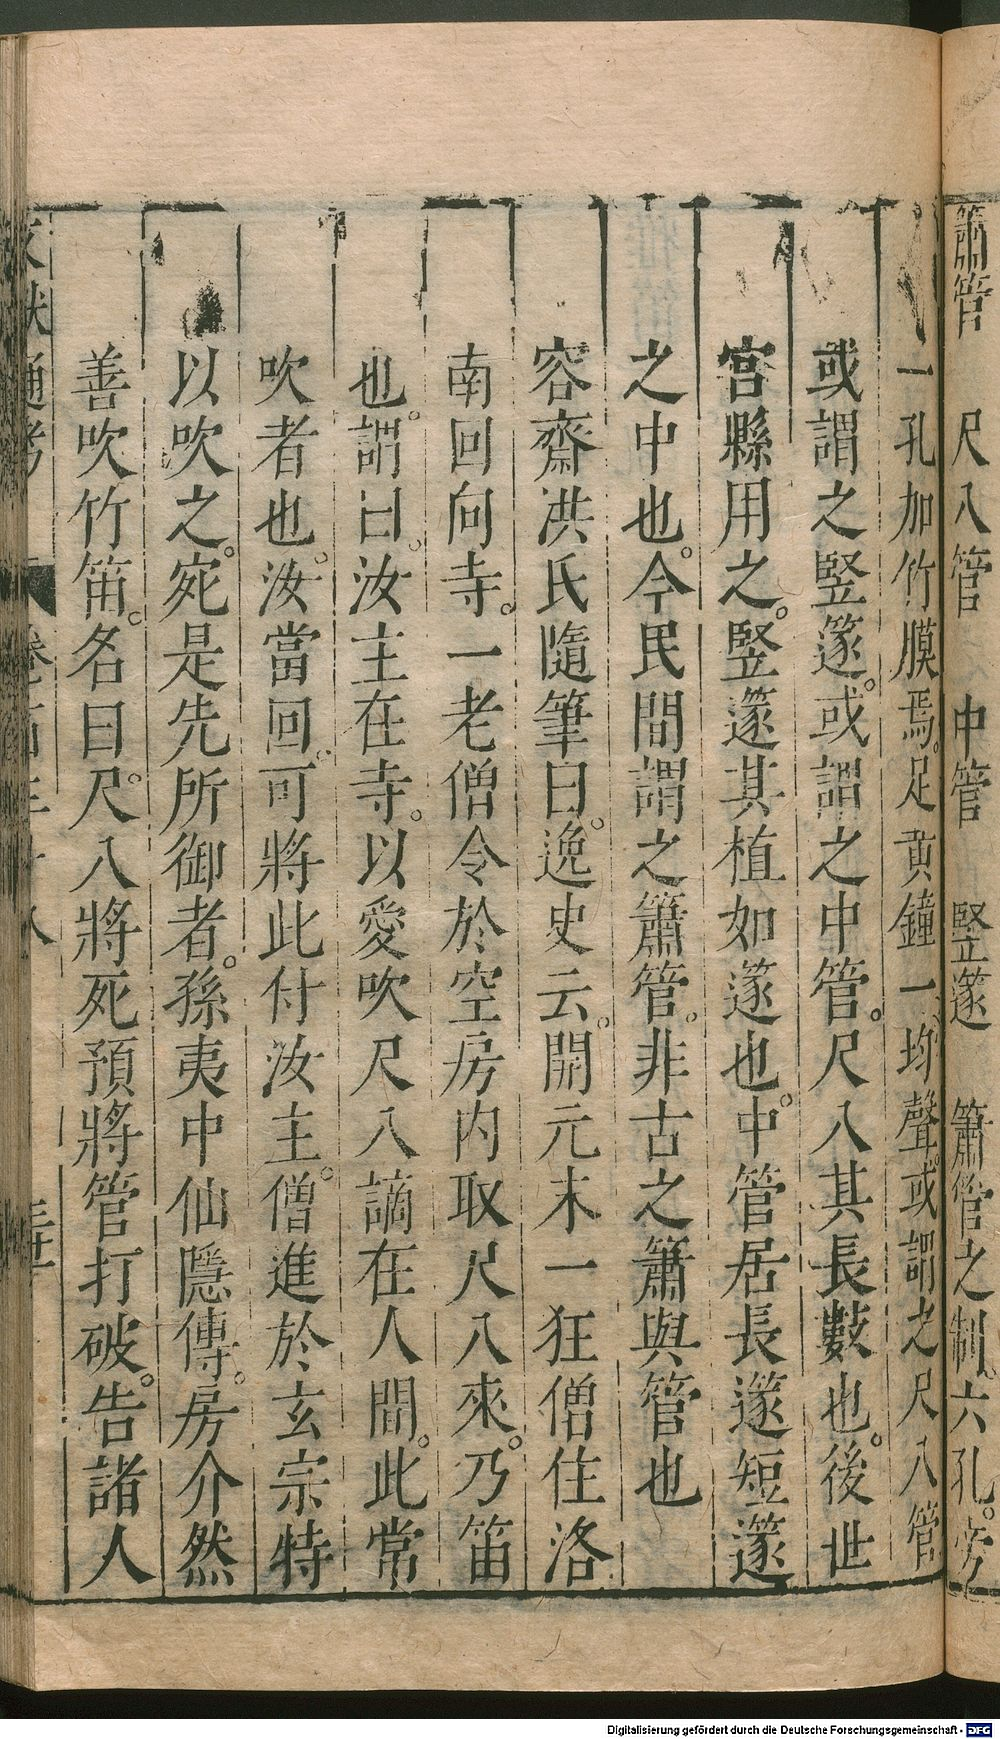 簫管　尺八管　中管　竪篴　簫管之制。六孔。旁
一孔加竹膜焉。足黃鐘一均聲。或謂之尺八管
或謂之竪篴。或謂之中管。尺八其長數也。後世
宮縣用之。竪篴其植如篴也。中管居長篴短篴
之中也。今民間謂之簫管。非古之簫與管也
容齋洪氏隨筆曰。逸史云。開元末一狂僧住洛
南回向寺。一老僧令於空房内取尺八來。乃笛
也。謂曰。汝主在寺。以愛吹尺八謫在人間。此常
吹者也。汝當回。可將此付汝主。僧進於玄宗特
以吹之。宛是先所御者。孫夷中仙隱傳。房介然
善吹竹笛。名曰尺。八將死預將管打破。告諸人
文獻通考
Digitalisierung gefördert durch die Deutsche Forschungsgemeinschaft - DFG